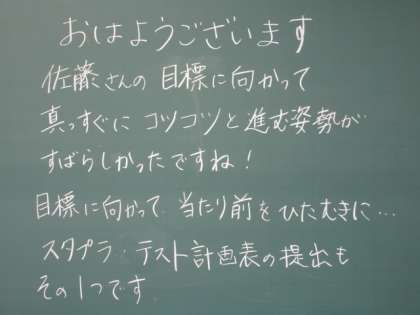 おはようございます
佐藤さんの目標に向かって
真っすぐにコツコツと進む姿勢が
すばらしかったですね!
目標に向かって当たり前をひたむきに…
スタプラ・テスト計画表の提出も
その1つです